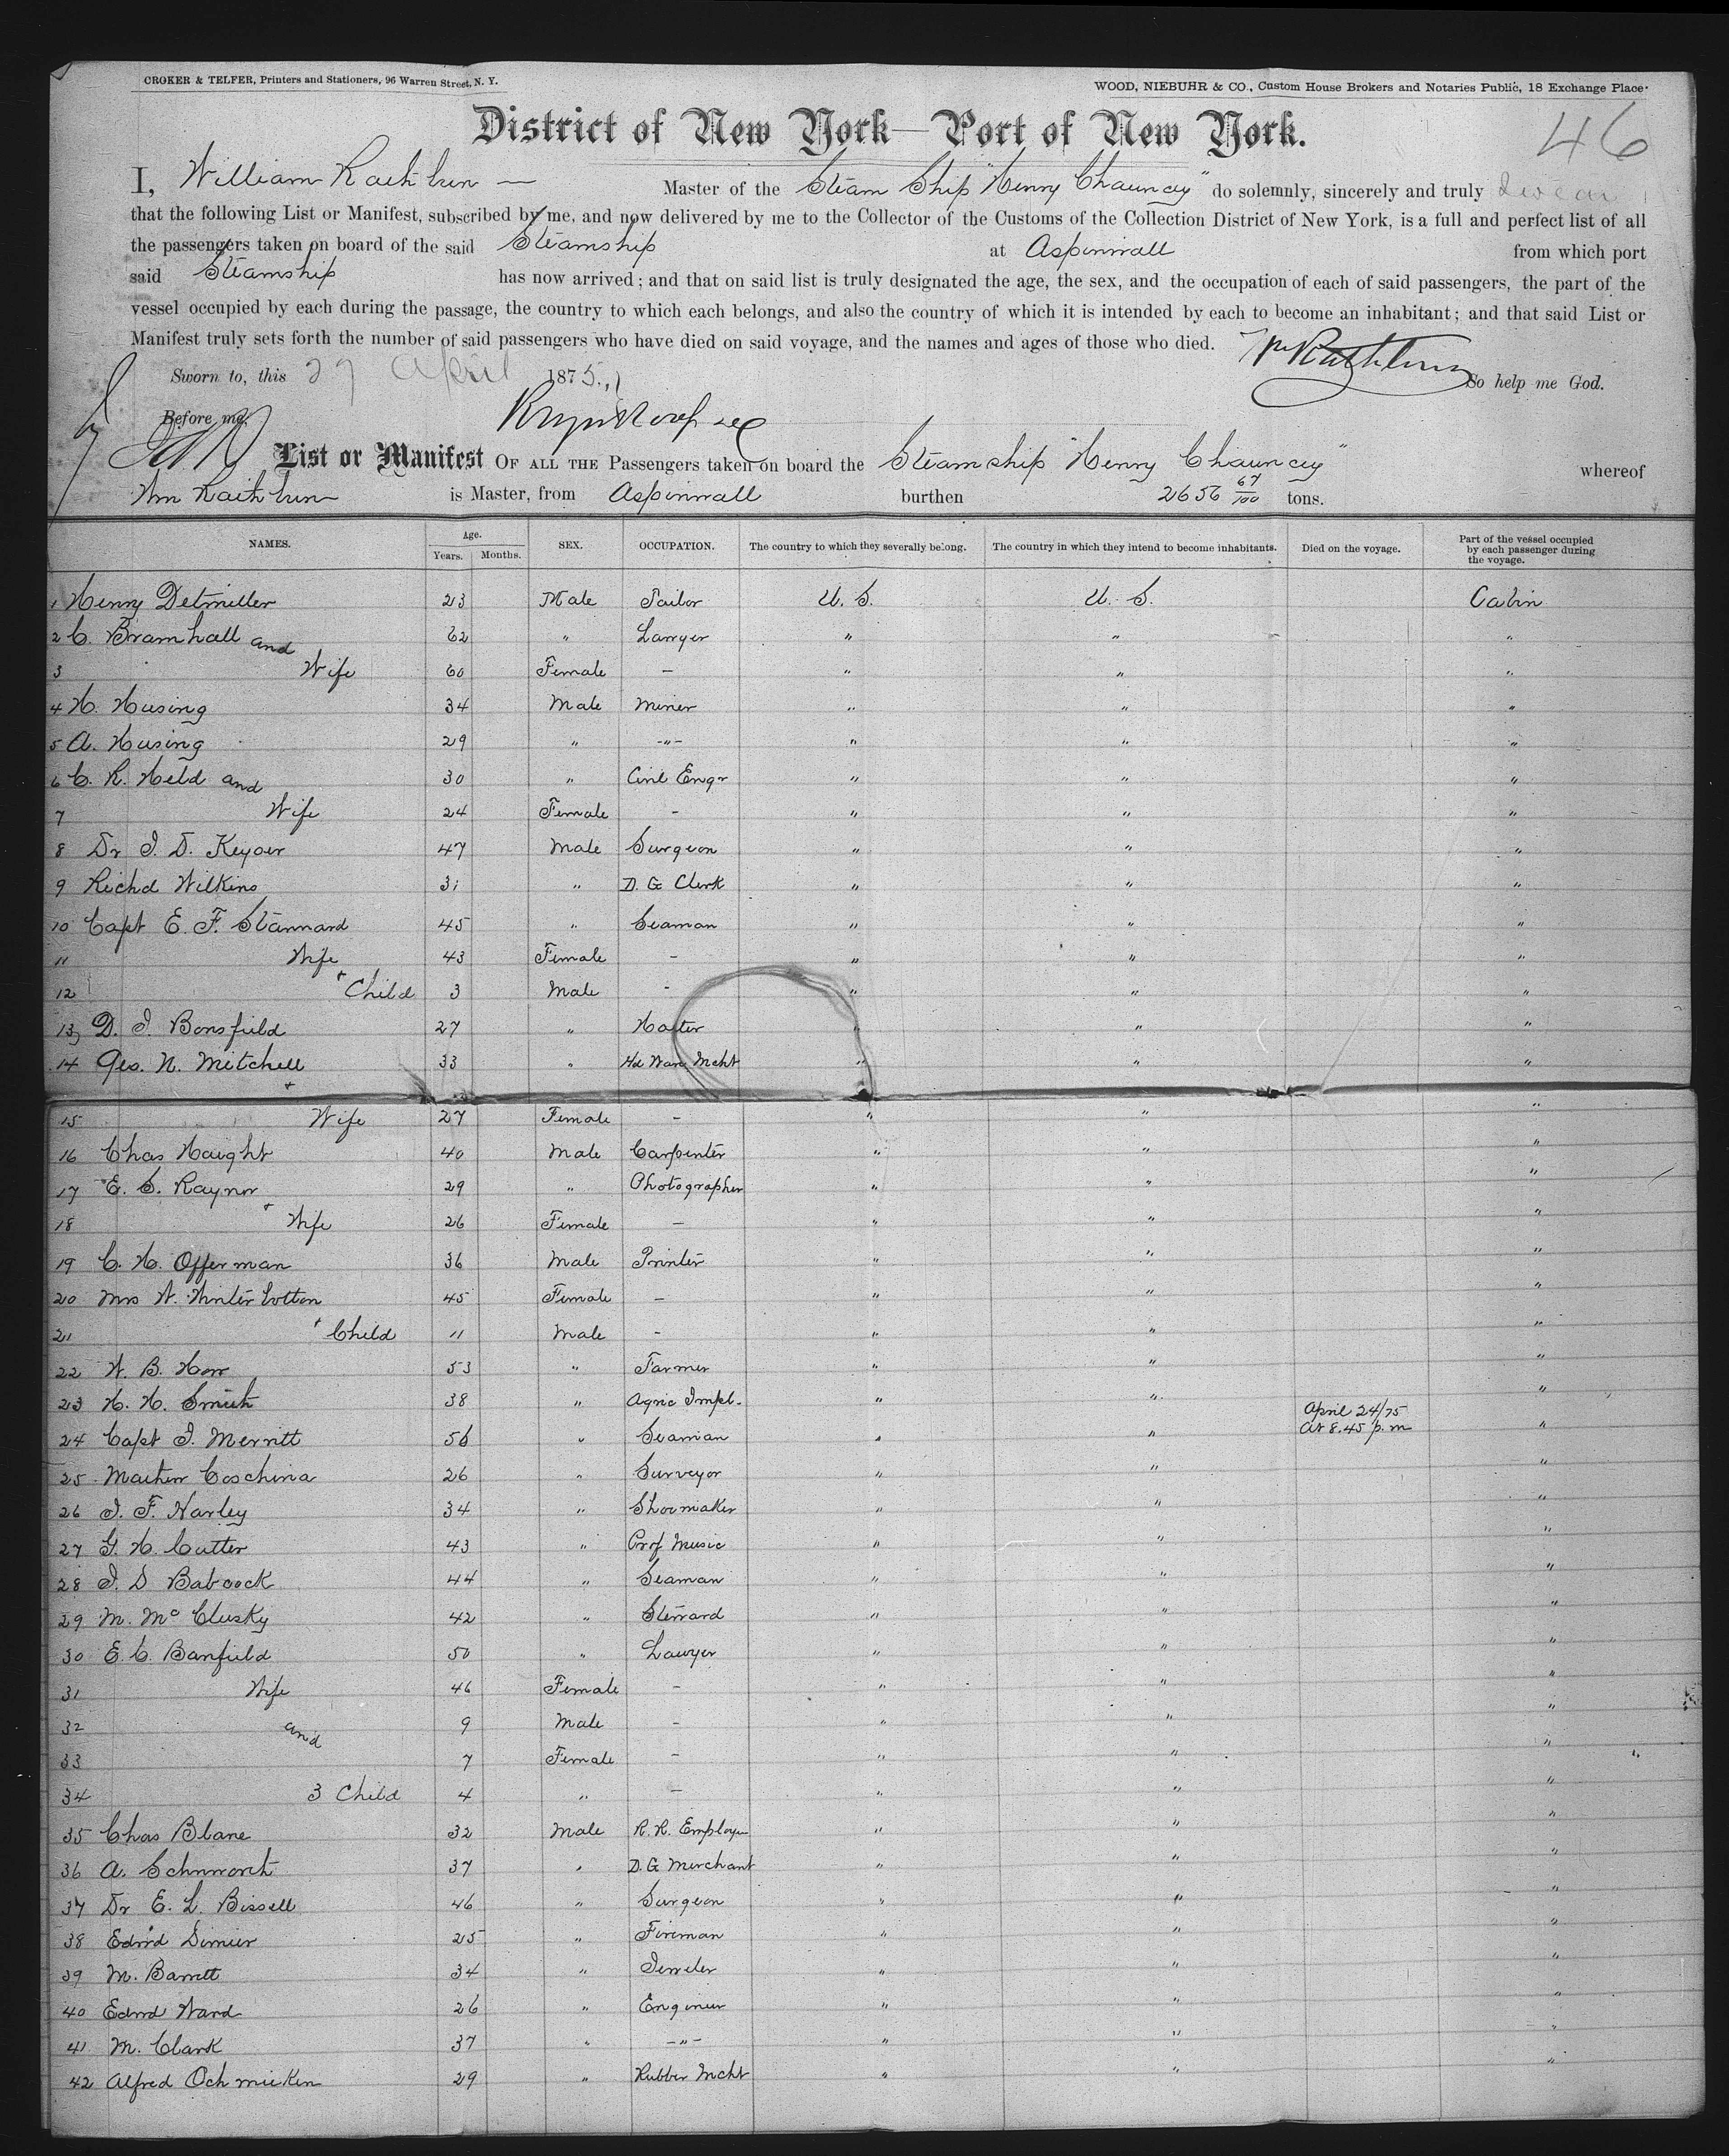 CROKER & TELFER, Printers and Stationers, 96 Warren Street, N. Y.
WOOD, NIEBUHR & CO., Custom House Brokers and Notaries Public, 18 Exchange Place.
District of New York—Port of New York.
46
I, William Rathbun — Master of the Steam Ship "Henry Chauncey" do solemnly, sincerely and truly swear
that the following List or Manifest, subscribed by me, and now delivered by me to the Collector of the Customs of the Collection District of New York, is a full and perfect list of all
the passengers taken on board of the said Steamship at Aspinwall from which port
said Steamship has now arrived; and that on said list is truly designated the age, the sex, and the occupation of each of said passengers, the part of the
vessel occupied by each during the passage, the country to which each belongs, and also the country of which it is intended by each to become an inhabitant; and that said List or
Manifest truly sets forth the number of said passengers who have died on said voyage, and the names and ages of those who died. Wm Rathbun
Sworn to, this 27 April 1875. So help me God.
Before me,
List or Manifest OF ALL THE Passengers taken on board the Steamship "Henry Chauncey" whereof
Wm Rathbun is Master, from Aspinwall burthen 2656 67/100 tons.
NAMES. Age. Years. Months. SEX. OCCUPATION. The country to which they severally belong. The country in which they intend to become inhabitants. Died on the voyage. Part of the vessel occupied by each passenger during the voyage.
1 Henry Detmiller 23 Male Tailor U. S. U. S. Cabin
2 C. Bramhall and 62 " Lawyer " " "
3 Wife 60 Female — " " "
4 H. Husing 34 Male Miner " " "
5 A. Husing 29 " -"- " " "
6 C. R. Held and 30 " Civil Engr " " "
7 Wife 24 Female - " " "
8 Dr J. D. Keyser 47 Male Surgeon " " "
9 Richd Wilkins 31 " D. G. Clerk " " "
10 Capt E. F. Stannard 45 " Seaman " " "
11 Wife 43 Female - " " "
12 + Child 3 Male - " " "
13 D. J. Bonsfield 27 " Hatter " " "
14 Geo. N. Mitchell + 33 " Hd Ware Mcht " " "
15 Wife 27 Female - " " "
16 Chas Haight 40 Male Carpenter " " "
17 E. S. Raynor 29 " Photographer " " "
18 + Wife 26 Female — " " "
19 C. H. Offerman 36 Male Printer " " "
20 Mrs W. Winterbottom 45 Female — " " "
21 + Child 11 Male - " " "
22 W. B. Horr 53 " Farmer " " "
23 H. H. Smith 38 " Agric Impl. " " "
24 Capt J. Merritt 56 " Seaman " " April 24/75 At 8.45 p.m "
25 Mathew Coschina 26 " Surveyor " " "
26 J. F. Harley 34 " Shoemaker " " "
27 G. H. Cutter 43 " Prof Music " " "
28 J. D Babcock 44 " Seaman " " "
29 M. Mc Clusky 42 " Steward " " "
30 E. C. Banfield 50 " Lawyer " " "
31 Wife 46 Female - " " "
32 and 9 Male - " " "
33 7 Female - " " "
34 3 Child 4 " — " " "
35 Chas Blane 32 Male R. R. Employee " " "
36 A. 37 " D. G. Merchant " " "
37 Dr E. L. Bissell 46 " Surgeon " " "
38 Edwd 25 " Fireman " " "
39 M. Barrett 34 " Jeweler " " "
40 Edwd Ward 26 " Engineer " " "
41 M. Clark 37 " -"- " " "
42 Alfred 29 " Rubber Mcht " " "